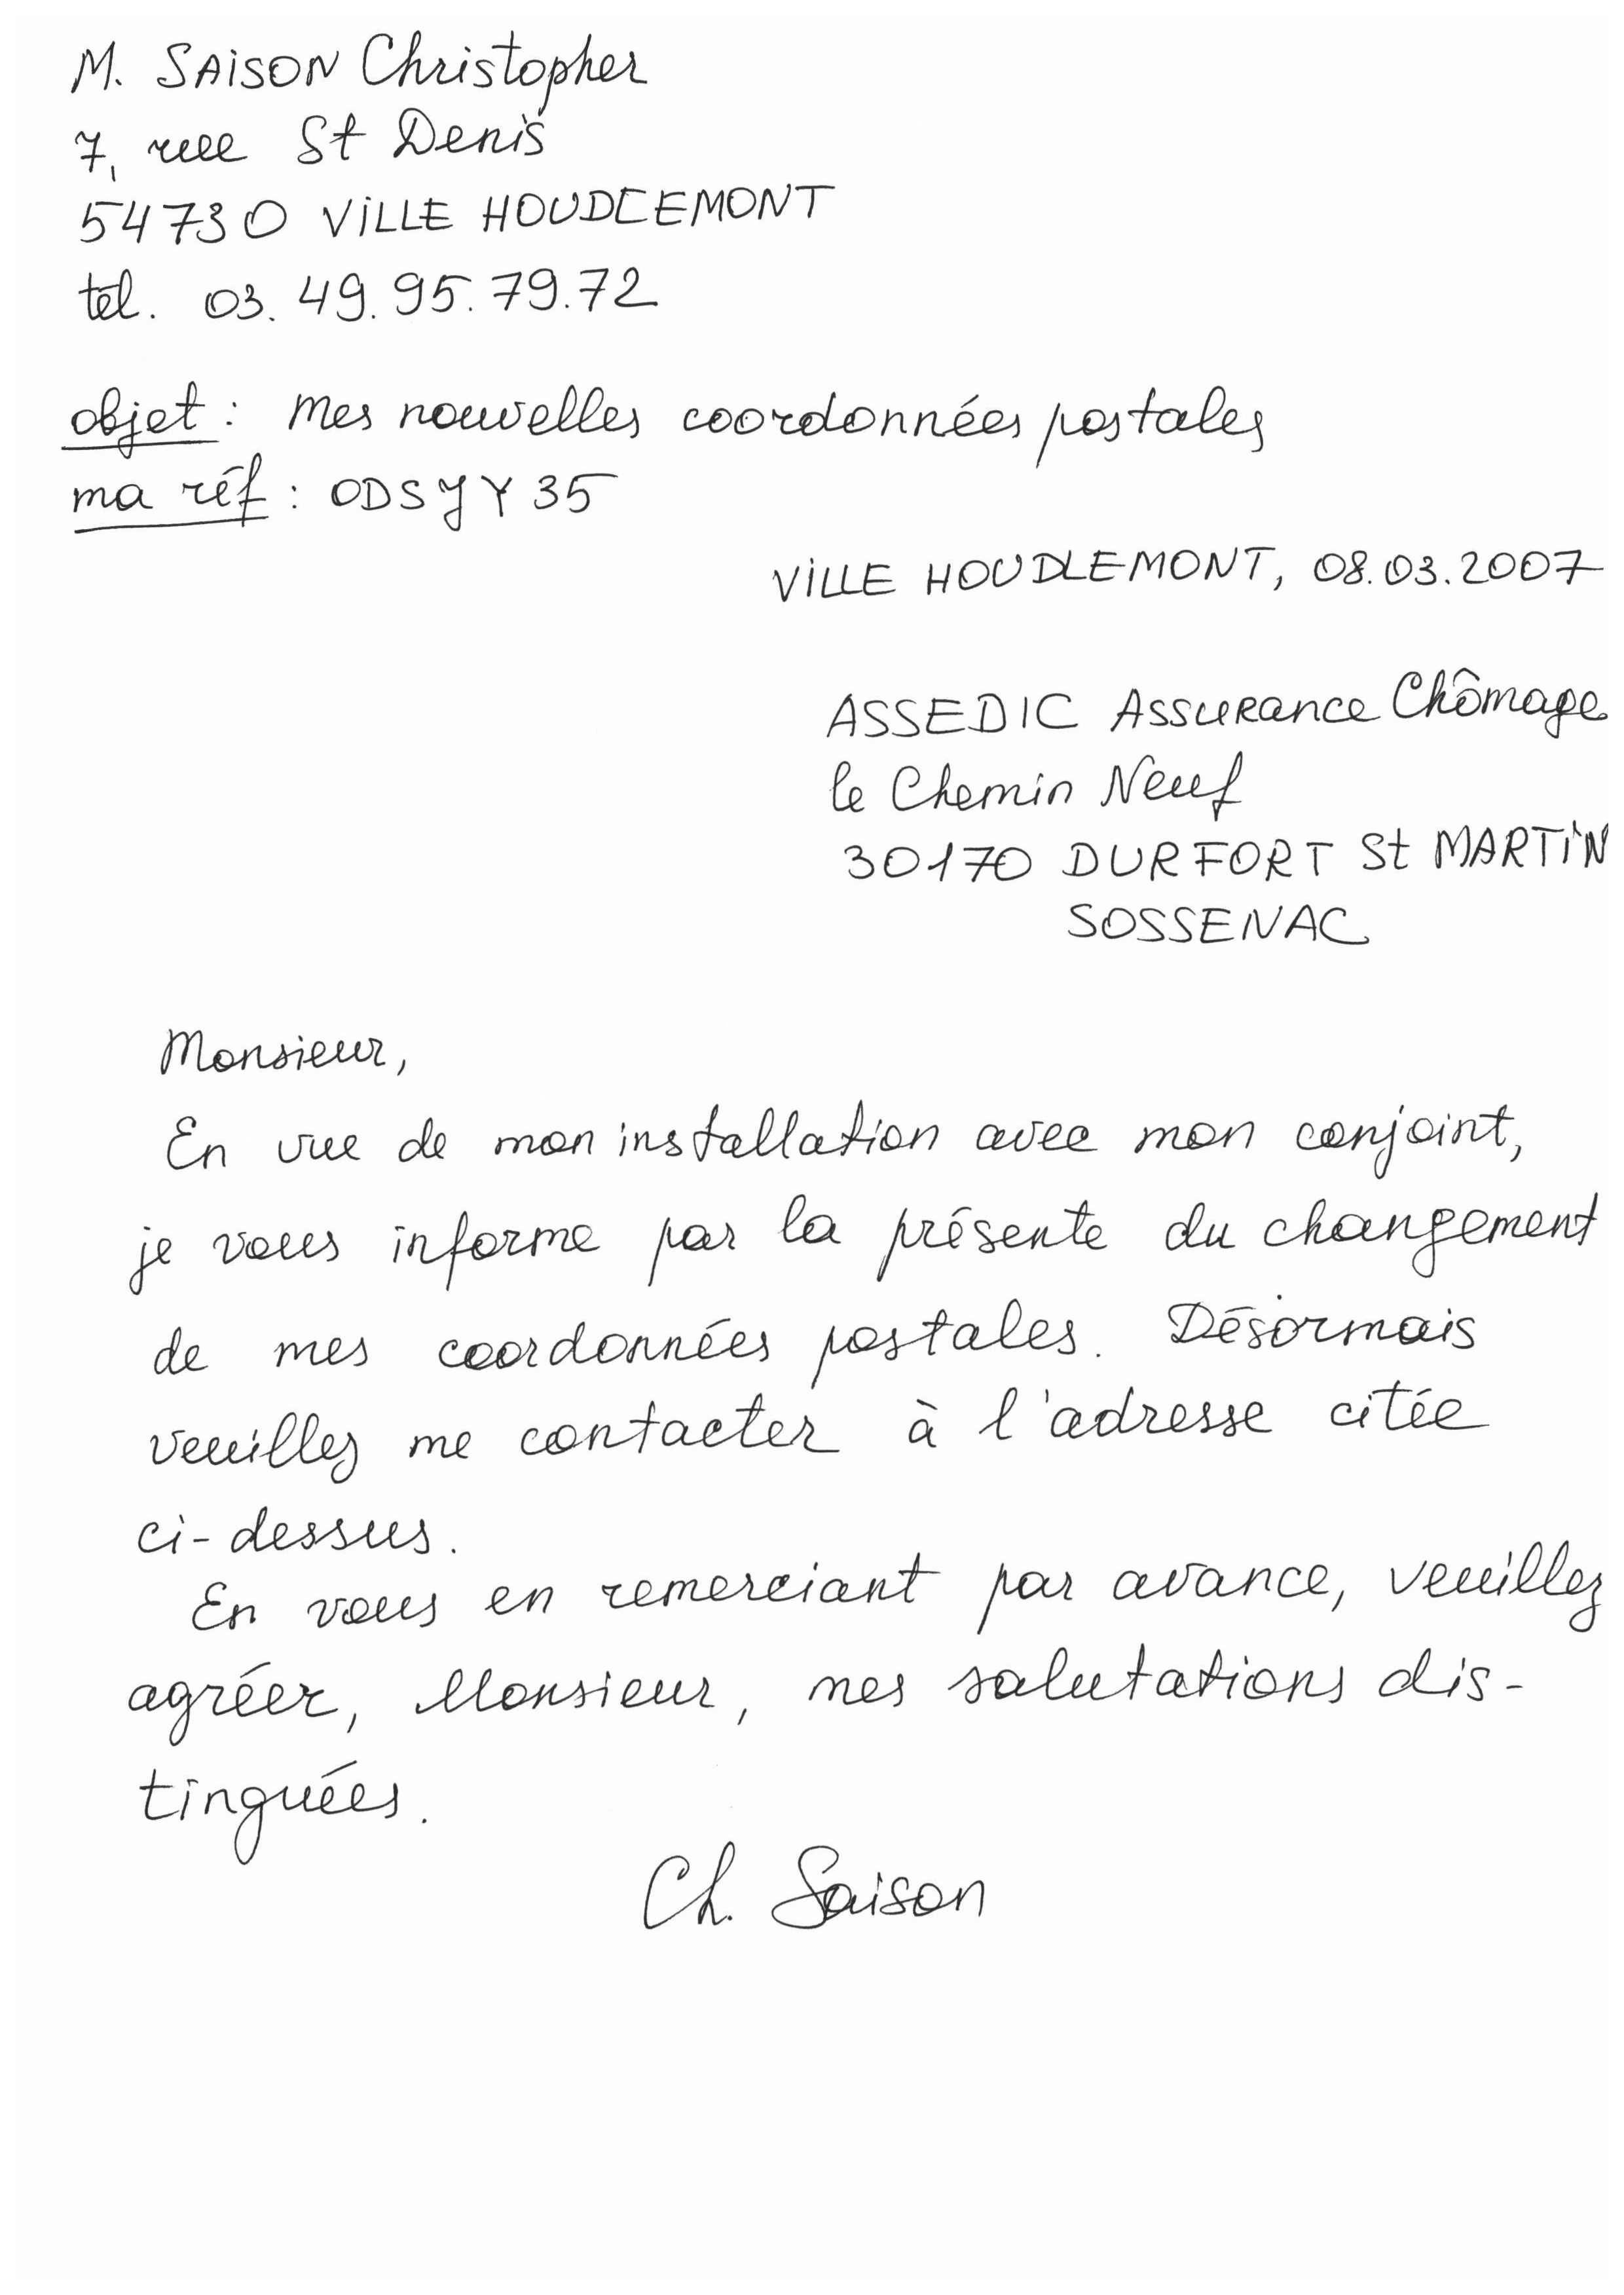 M. SAISON Christopher
7, rue St Denis
54730 VILLE HOUDLEMONT
tél. 03.49.95.79.72
objet : Mes nouvelles coordonnées postales
ma réf : ODSYY35
VILLE HOUDLEMONT, 08.03.2007
ASSEDIC Assurance Chômage
le Chemin Neuf
30170 DURFORT St MARTIN
SOSSENAC
Monsieur,
En vue de mon installation avec mon conjoint,
je vous informe par la présente du changement
de mes coordonnées postales. Désormais
veuillez me contacter à l'adresse citée
ci-dessus.
En vous en remerciant par avance, veuillez
agréer, Monsieur, mes salutations dis-
tinguées.
Ch. Saison